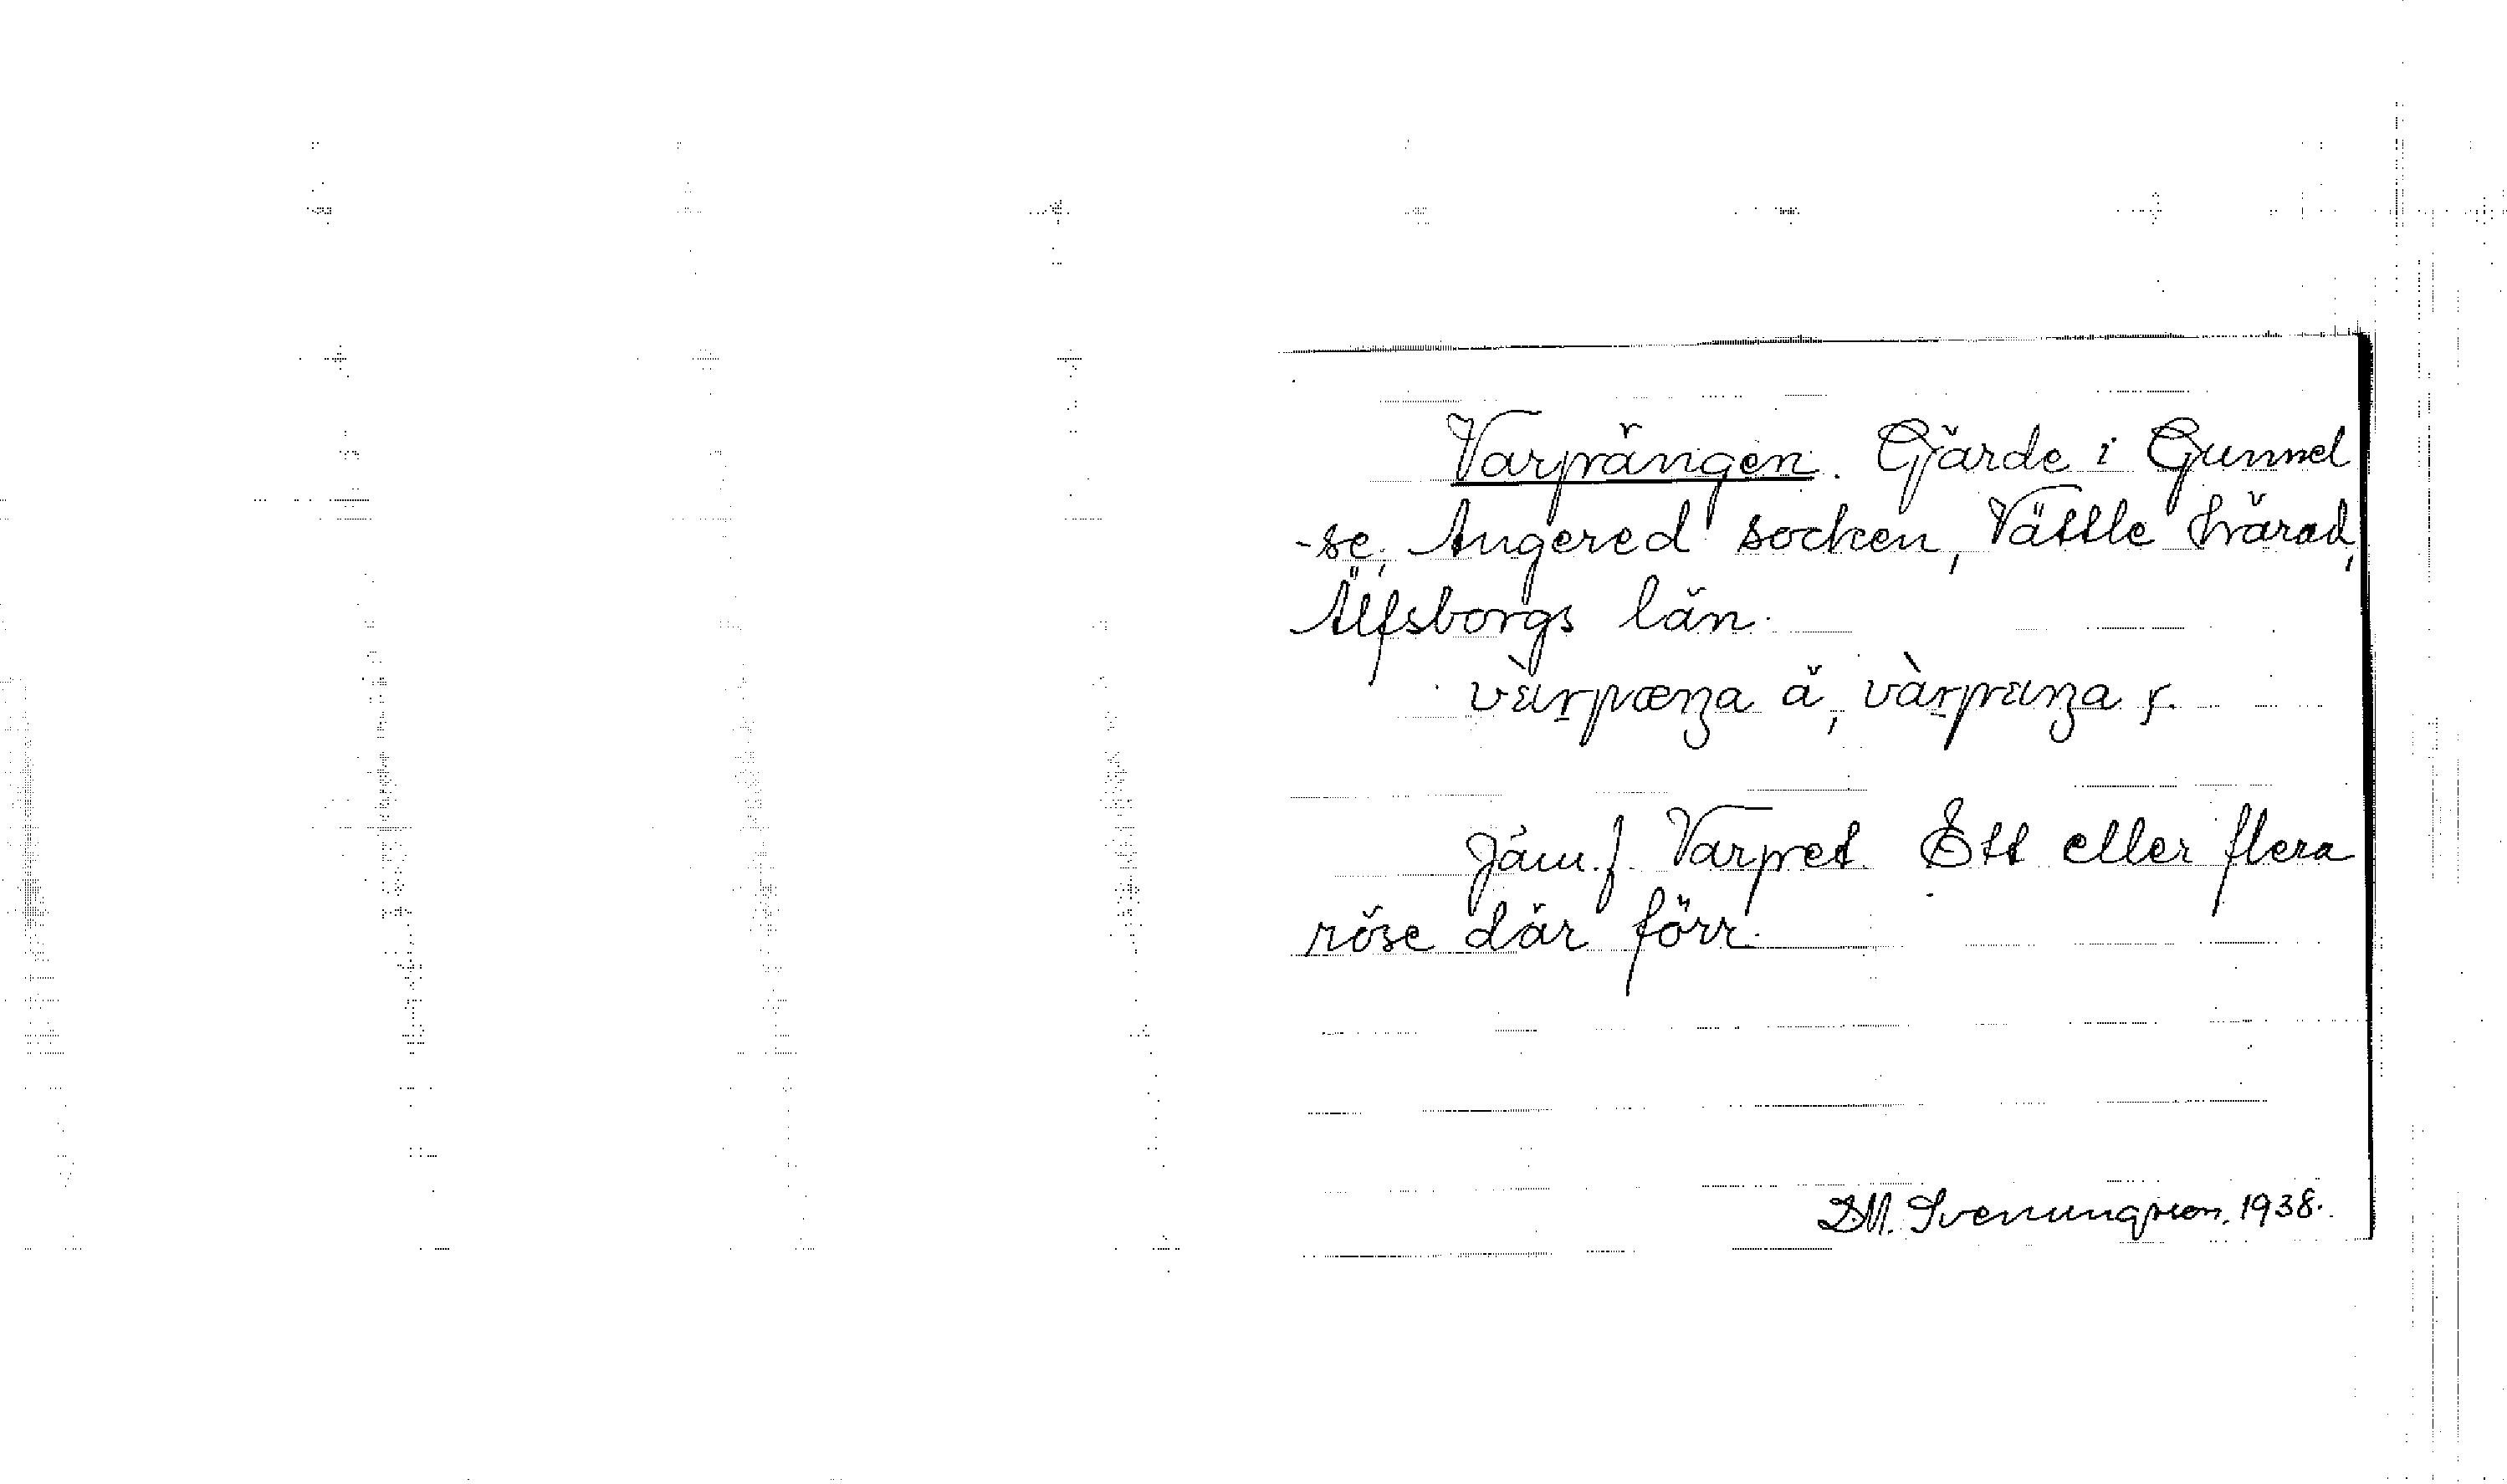 Varpängen. Gärde i Gunnel
-se, Angered socken, Vättle härad,
Älfsborgs län.
Jäm.f. Varpet. Ett eller flera
röse där förr.
D.M. Svenungsson, 1938.